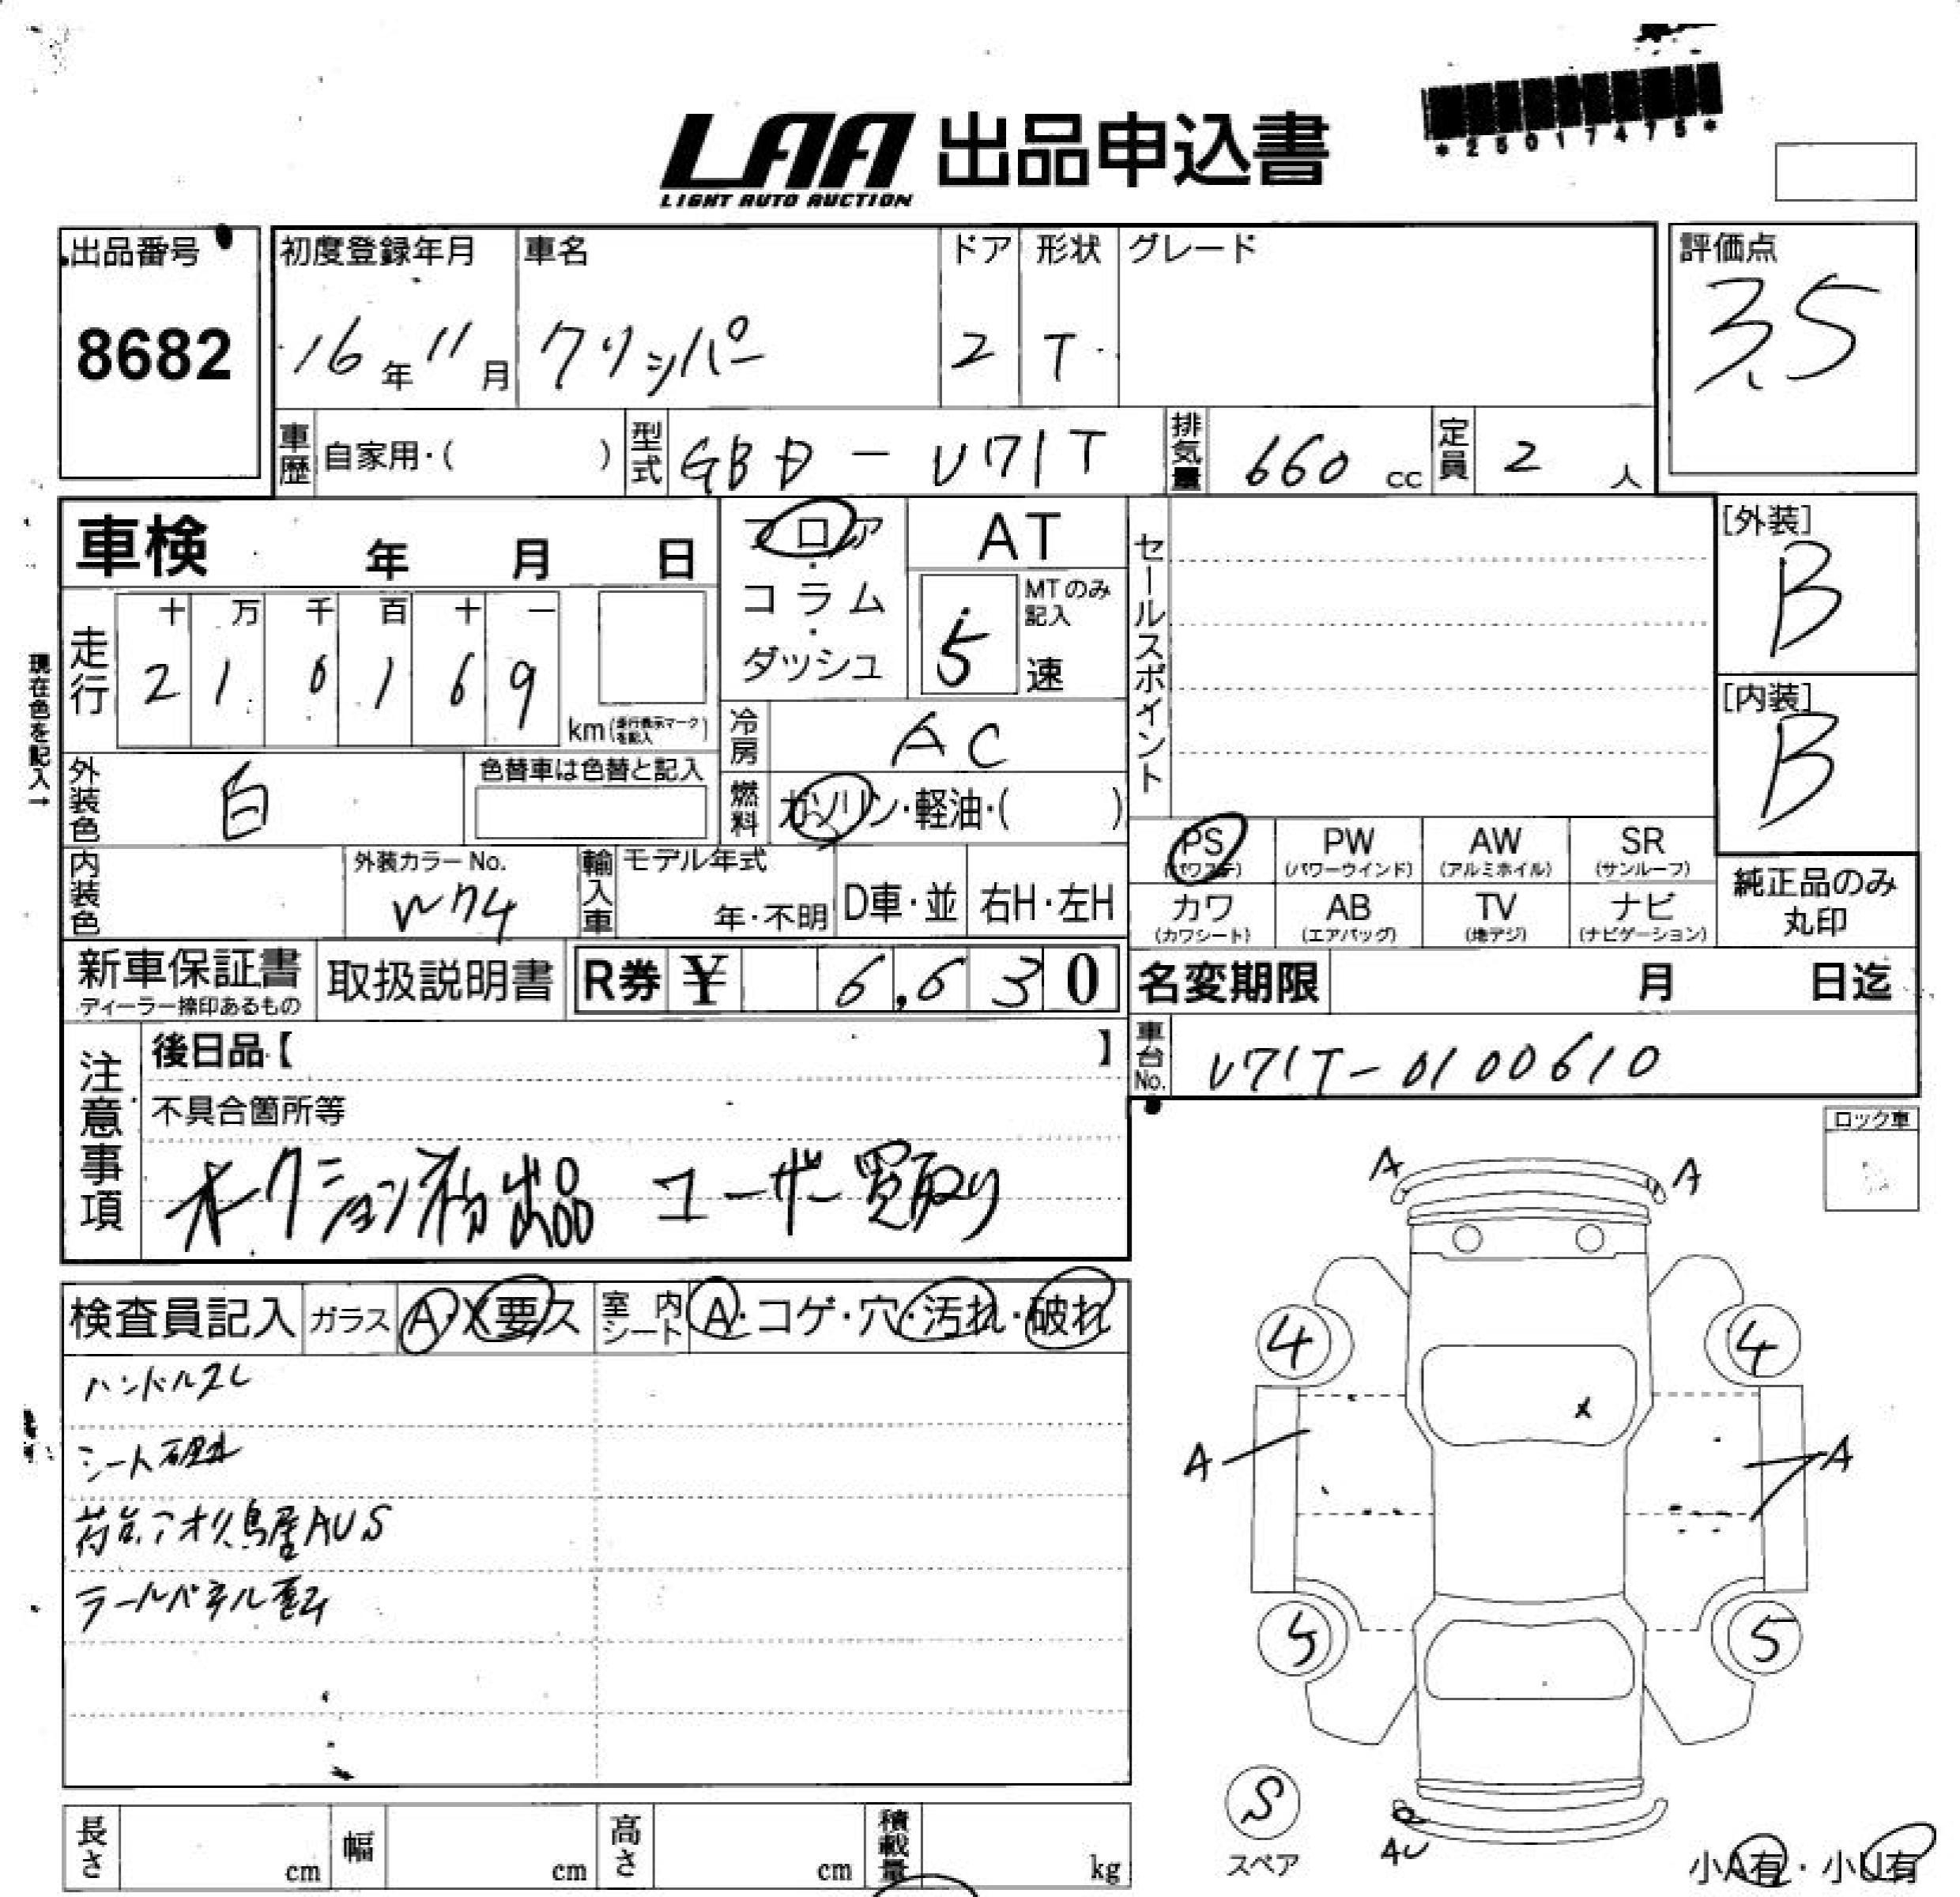 *25017475*
LAA 出品申込書
LIGHT AUTO AUCTION
出品番号
8682
初度登録年月
16年11月
車名
クリッパー
ドア
2
形状
T
グレード
評価点
3.5
車歴 自家用・( )
型式 GBD-U71T
排気量 660 cc
定員 2 人
車検 年 月 日
フロア・コラム・ダッシュ
AT
MTのみ記入
5 速
セールスポイント
[外装]
B
[内装]
B
現在色を記入→
走行
十 万 千 百 十 一
2 1 6 1 6 9
km(走行表示マークを記入)
冷房 AC
外装色 白
色替車は色替と記入
燃料 ガソリン・軽油・( )
PS (パワステ)
PW (パワーウインド)
AW (アルミホイル)
SR (サンルーフ)
カワ (カワシート)
AB (エアバッグ)
TV (地デジ)
ナビ (ナビゲーション)
純正品のみ丸印
内装色
外装カラーNo.
W74
輸入車
モデル年式
年・不明
D車・並
右H・左H
新車保証書
ディーラー捺印あるもの
取扱説明書
R券 ¥ 6,630
名変期限 月 日迄
車台No. U71T-0100610
注意事項
後日品【 】
不具合箇所等
オークション初出品 ユーザー買取り
ロック車
検査員記入
ガラス A・X要ス
室内シート A・コゲ・穴・汚れ・破れ
ハンドルスレ
シート破れ
荷台アオリ鳥居AUS
A A
4 4
X
A A
5 5
S
スペア
AU
小A有・小U有
長さ cm
幅 cm
高さ cm
積載量 kg